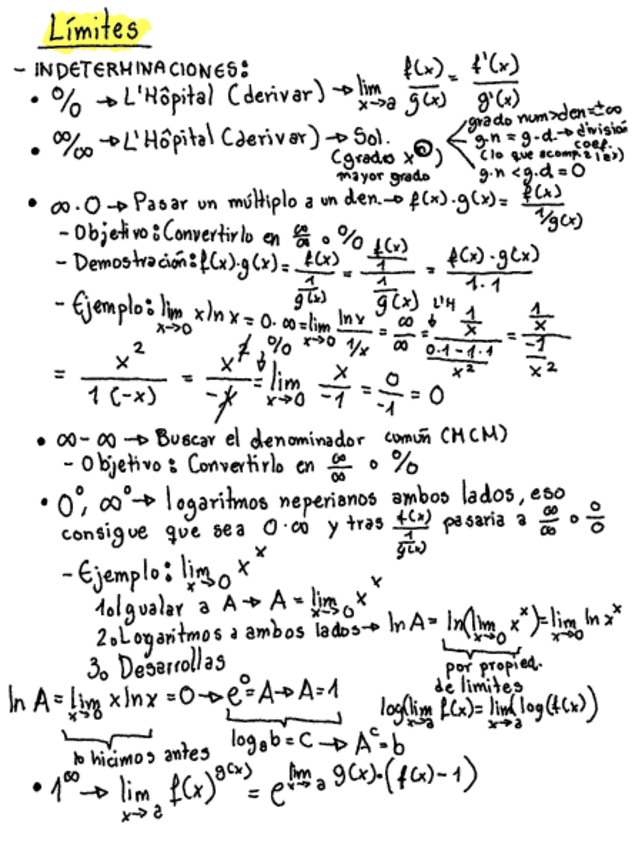 Límites
- INDETERMINACIONES:
• 0/0 → L'Hôpital (derivar) → lim x→a f(x)/g(x) = f'(x)/g'(x)
• ∞/∞ → L'Hôpital (derivar) → Sol. (grado x^n) mayor grado
grado num>den=±∞
g.n = g.d → división coef.
(lo que acomp.
g.n < g.d = 0
• ∞·0 → Pasar un múltiplo a un den. → f(x)·g(x) = f(x)/1/g(x)
- Objetivo: Convertirlo en ∞/∞ o 0/0
- Demostración: f(x)·g(x) = f(x)/(1/g(x)) = (f(x)/1)/(1/g(x)) = f(x)·g(x)/1·1
- Ejemplo: lim x→0 x ln x = 0·∞ = lim x→0 ln x/1/x = ∞/∞ = L'H (1/x)/((0·1-1·1)/x²) = (1/x)/(-1/x²)
= x²/1(-x) = x²/-x = 0/0 lim x→0 x/-1 = 0/-1 = 0
• ∞-∞ → Buscar el denominador común (MCM)
- Objetivo: Convertirlo en ∞/∞ o 0/0
• 0⁰, ∞⁰ → logaritmos neperianos ambos lados, eso
consigue que sea 0·∞ y tras f(x)/(1/g(x)) pasaria a ∞/∞ o 0/0
- Ejemplo: lim x→0 x^x
1. Igualar a A → A = lim x→0 x^x
2. Logaritmos a ambos lados → ln A = ln(lim x→0 x^x) = lim x→0 ln x^x
3. Desarrollas
por propied.
de limites
ln A = lim x→0 x ln x = 0 → e⁰ = A → A = 1
log(lim x→a f(x) = lim x→a (log(f(x))
lo hicimos antes
log_a b = C → A^c = b
• 1^∞ → lim x→a f(x)^g(x) = e^lim x→a g(x)·(f(x)-1)